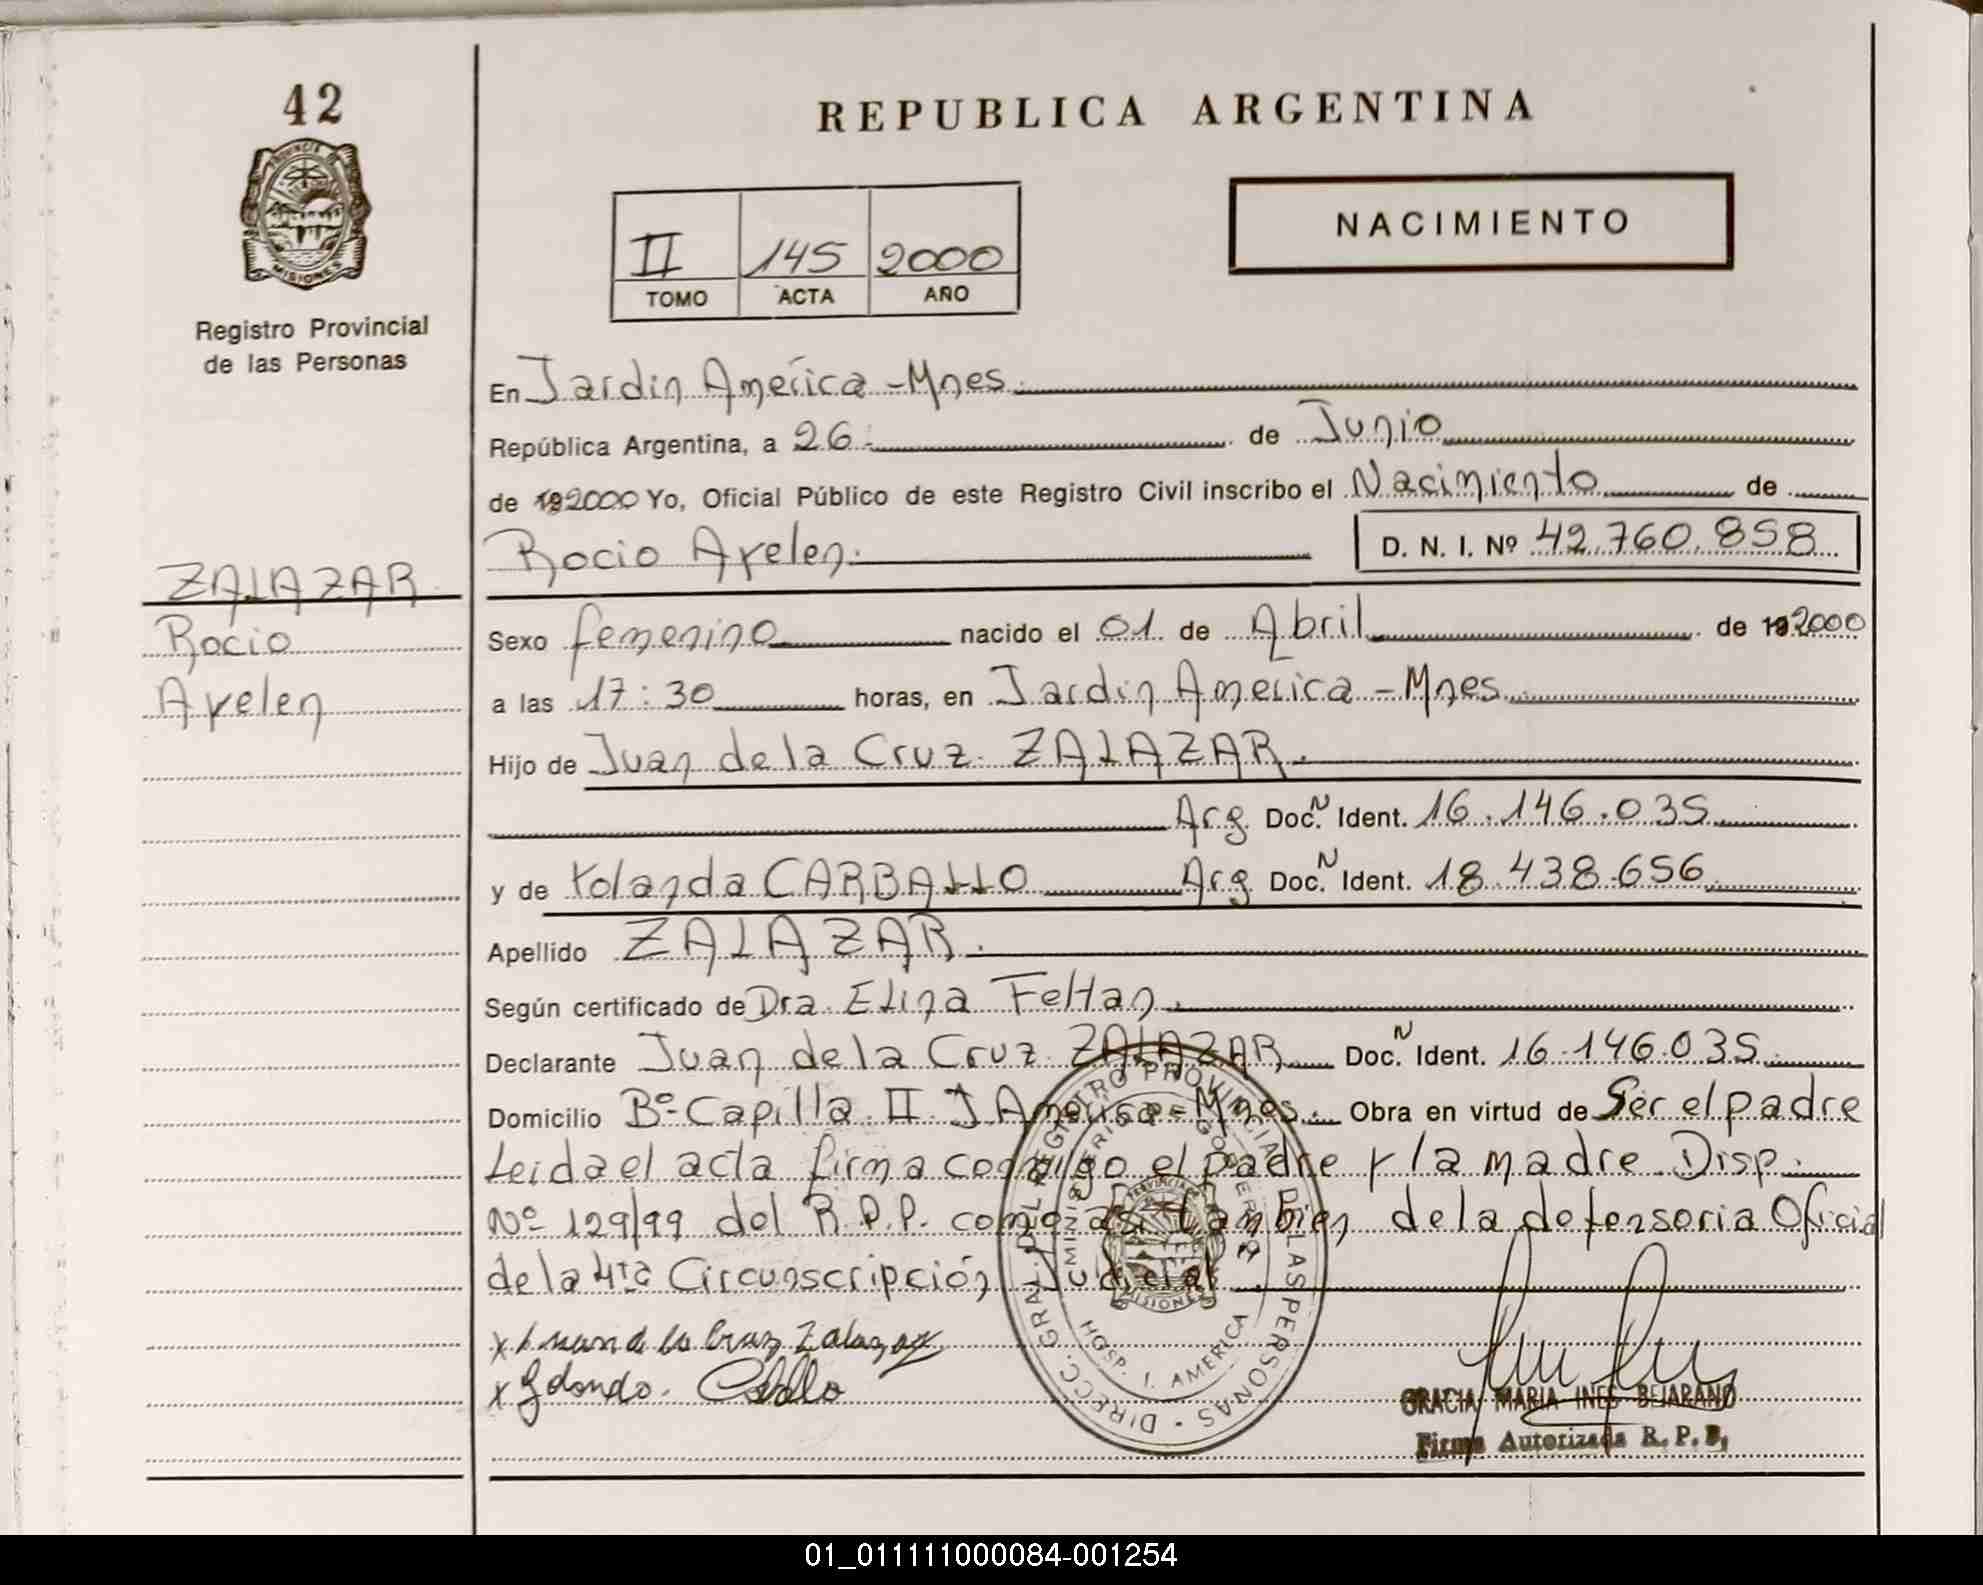 42
PROVINCIA DE
MISIONES
Registro Provincial
de las Personas
ZALAZAR
Rocio
Ayelen
REPUBLICA ARGENTINA
NACIMIENTO
II 145 2000
TOMO ACTA AÑO
En Jardin América - Mnes.
República Argentina, a 26 de Junio
de 192000 Yo, Oficial Público de este Registro Civil inscribo el Nacimiento de
Rocio Ayelen. D. N. I. Nº 42.760.858
Sexo femenino nacido el 01 de Abril de 192000
a las 17:30 horas, en Jardin America - Mnes.
Hijo de Juan de la Cruz ZALAZAR.
Arg Doc. N Ident. 16.146.035
y de Yolanda CARBALLO Arg Doc. N Ident. 18.438.656
Apellido ZALAZAR.
Según certificado de Dra. Elina Feltan.
Declarante Juan de la Cruz ZALAZAR Doc. N Ident. 16.146.035
Domicilio Bº Capilla II J. America - Mnes. Obra en virtud de Ser el padre
Leida el acta firma conmigo el padre y la madre Disp.
Nº 129/99 del R.P.P. como asi tambien de la defensoria Oficial
de la 4ta Circunscripción Judicial
x Juan de la Cruz Zalazar
x Yolanda
DIRECC. GRAL. DEL REGISTRO PROVINCIAL DE LAS PERSONAS
MINISTERIO DE GOBIERNO
HOSP. J. AMERICA
PROVINCIA DE
MISIONES
GRACIA MARIA INES BEJARANO
Firma Autorizada R. P. P.
01_011111000084-001254